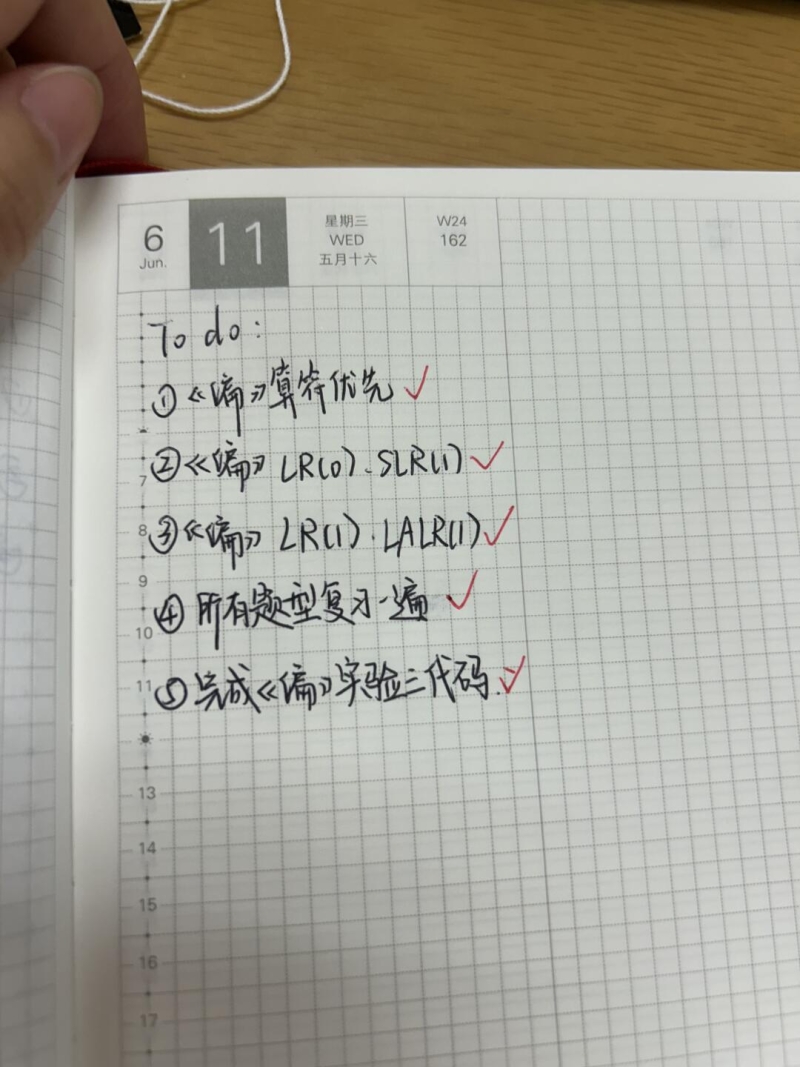 6
Jun.
11
星期三
WED
五月十六
W24
162
To do:
①《编》算符优先 ✓
②《编》LR(0).SLR(1) ✓
7
③《编》LR(1).LALR(1) ✓
8
9
④所有题型复习一遍 ✓
10
⑤完成《编》实验三代码. ✓
11
13
14
15
16
17